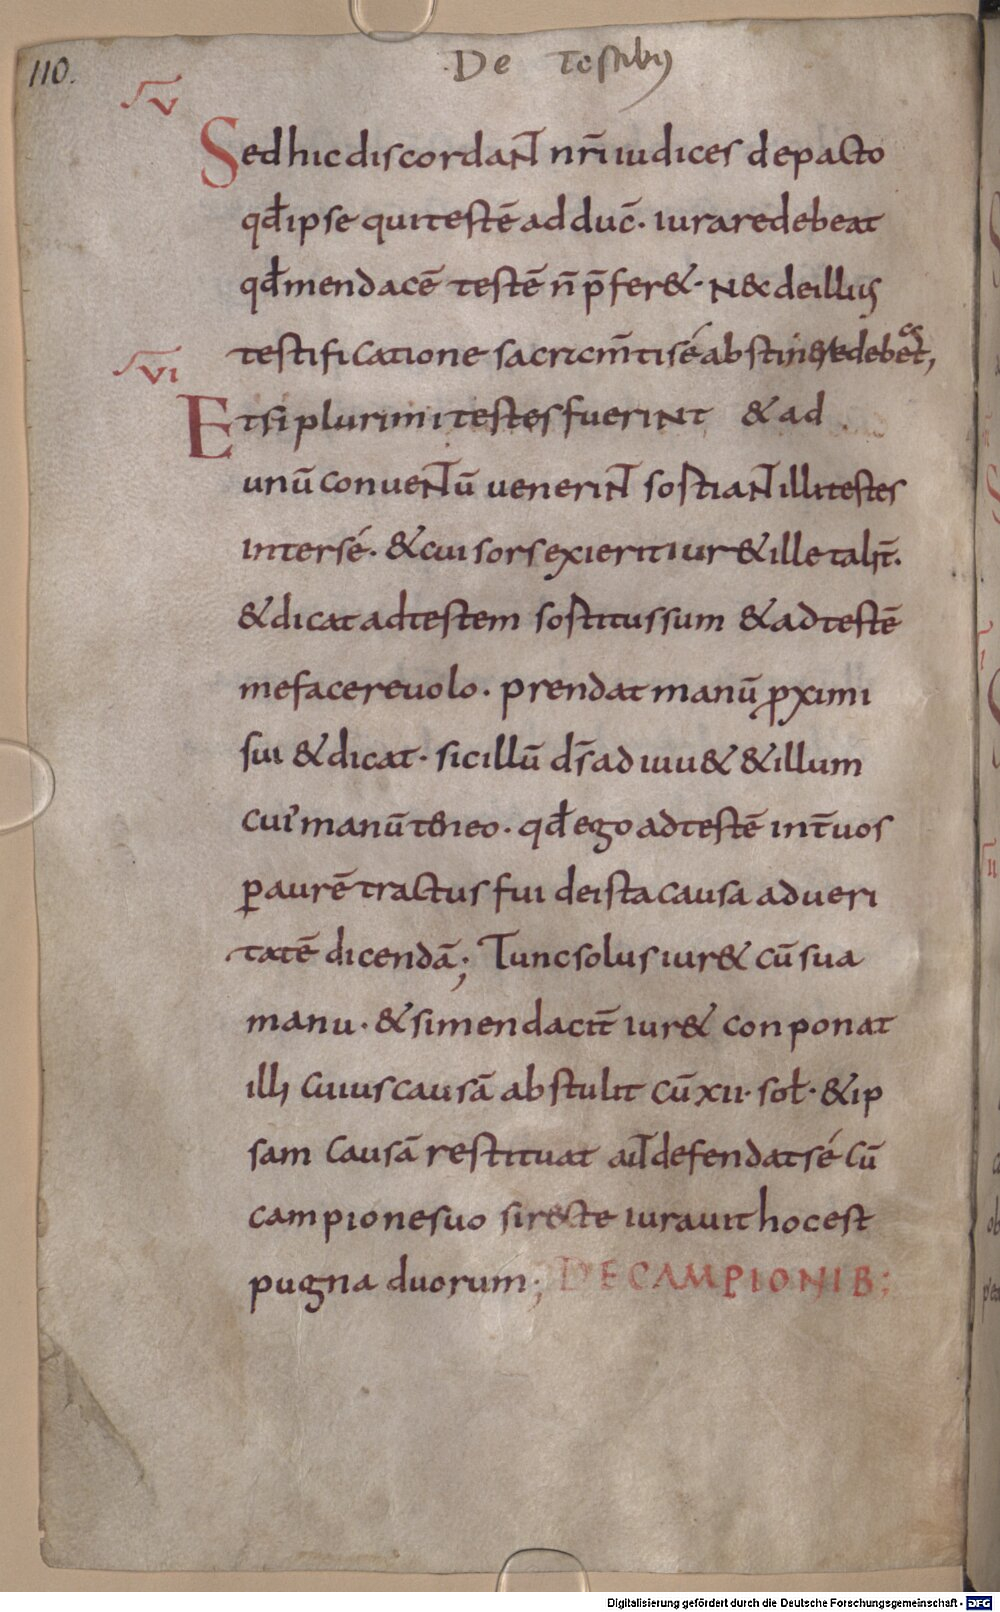 110.
De Testibꝫ
V
Sed hic discordaNT nr̄i iudices de pacto
qđ ipse qui testē ad duc̄· iurare debeat
qđ mendacē testē n̄ p̄fer&· N& de illius
testificatione sacrcm̄ti sé abstin& debet,
VI
Et si plurimi testes fueriNt & ad
unū conueNTū ueneriNT sortiaNT illi testes
inter sé· & cui sors exierit iur& ille talit̄.
& dicat ad testem sortitus sum & ad testē
me facere uolo· prendat manū ꝓximi
sui & dicat· sic illū dr̄ ad iuu& & illum
cui' manū teneo· qđ ego ad testē int̄ uos
ꝑ aurē tractus fui de ista causa ad ueri
tatē dicendā; Tunc solus iur& cū sua
manu· & si mendacit̄ iur& conponat
illi cuius causā abstulit cū xii· sol̄· & ip
sam causā restituat aut defendat sé cū
campione suo si recte iurauit hoc est
pugna duorum; DE CAMPIONIB;
Digitalisierung gefördert durch die Deutsche Forschungsgemeinschaft - DFG